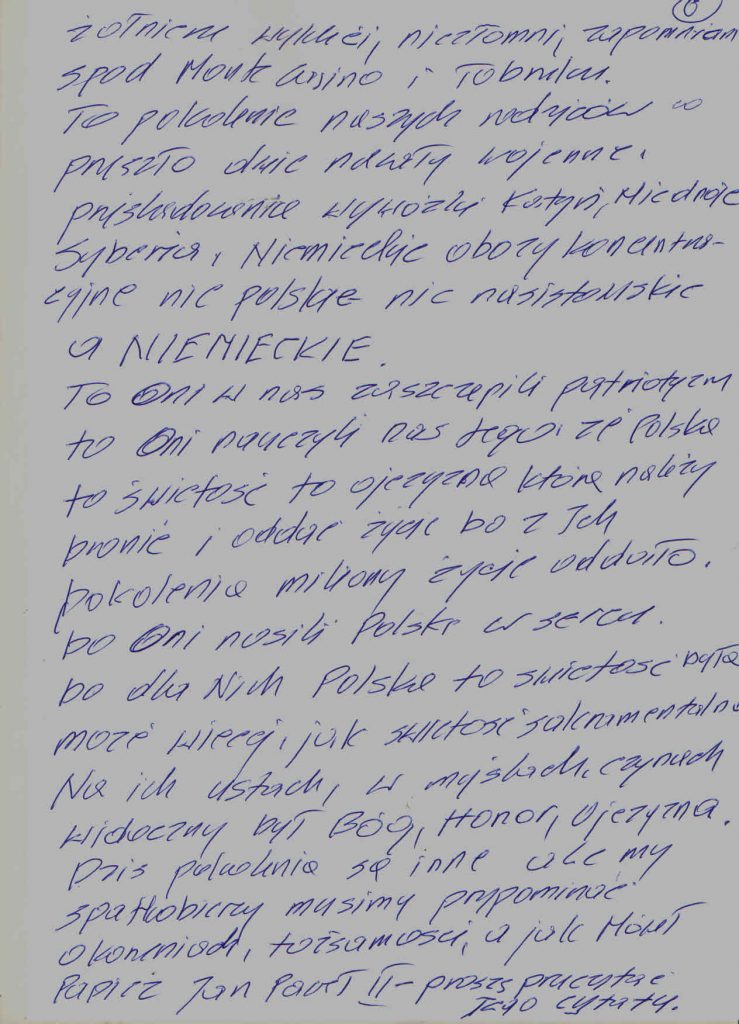 6
żołnierze wyklęci, niezłomni, zapomniani
spod Monte Cassino i Tobruku.
To pokolenie naszych rodziców co
przeszło dwie nawały wojenne.
prześladowania wywózki Katyń, Miednoje
Syberia, Niemieckie obozy koncentra-
cyjne nie polskie nie nasistowskie
a NIEMIECKIE.
To Oni w nas zaszczepili patriotyzm
to Oni nauczyli nas tego, że Polska
to świętość to ojczyzna którą należy
bronić i oddać życie bo z Ich
pokolenia miliony życie oddało.
bo Oni nosili Polskę w sercu.
bo dla Nich Polska to świętość była
może więcej, jak świętość sakramentalna
Na ich ustach, w myślach, czynach
widoczny był Bóg, Honor, Ojczyzna.
Dziś pokolenia są inne ale my
spatkobiercy musimy przypominać
o korzeniach, tożsamości, a jak Mówił
Papież Jan Paweł II - proszę przeczytać
Jego cytaty.